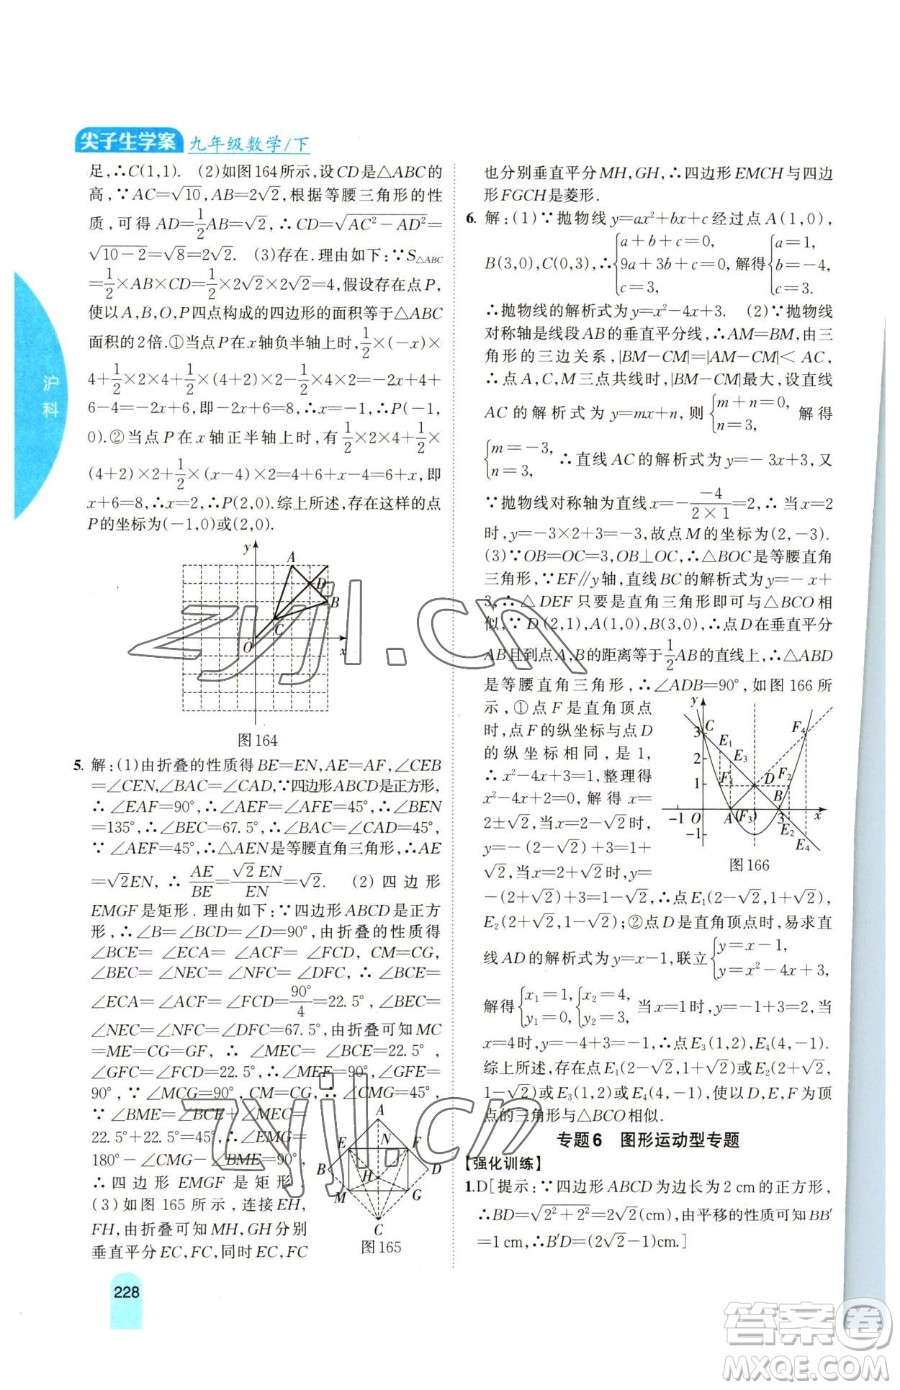 尖子生学案 九年级数学/下
足,∴C(1,1). (2)如图164所示,设CD是△ABC的
高,∵AC=√10,AB=2√2,根据等腰三角形的性
质,可得AD=1/2AB=√2,∴CD=√(AC²-AD²)=
√(10-2)=√8=2√2. (3)存在.理由如下:∵S△ABC
=1/2×AB×CD=1/2×2√2×2√2=4,假设存在点P,
使以A,B,O,P四点构成的四边形的面积等于△ABC
面积的2倍.①当点P在x轴负半轴上时,1/2×(-x)×
4+1/2×2×4+1/2×(4+2)×2-1/2×4×2=-2x+4+
6-4=-2x+6,即-2x+6=8,∴x=-1,∴P(-1,
0).②当点P在x轴正半轴上时,有1/2×2×4+1/2×
(4+2)×2+1/2×(x-4)×2-1/2×4×2=x+6,即
x+6=8,∴x=2,∴P(2,0).综上所述,存在这样的点
P的坐标为(-1,0)或(2,0).
y
A
D
B
C
O
x
图164
5. 解:(1)由折叠的性质得BE=EN,AE=AF,∠CEB
=∠CEN,∠BAC=∠CAD,∵四边形ABCD是正方形,
∴∠EAF=90°,∴∠AEF=∠AFE=45°,∴∠BEN
=135°,∴∠BEC=67.5°,∴∠BAC=∠CAD=45°,
∵∠AEF=45°,∴△AEN是等腰直角三角形,∴AE
=√2EN,∴AE/BE=√2EN/EN=√2. (2)四边形
EMGF是矩形.理由如下:∵四边形ABCD是正方
形,∴∠B=∠BCD=∠D=90°,由折叠的性质得
∠BCE=∠ECA=∠ACF=∠FCD, CM=CG,
∠BEC=∠NEC=∠NFC=∠DFC,∴∠BCE=
∠ECA=∠ACF=∠FCD=90°/4=22.5°,∠BEC=
∠NEC=∠NFC=∠DFC=67.5°,由折叠可知MC
=ME=CG=GF,∴∠MEC=∠BCE=22.5°,
∠GFC=∠FCD=22.5°,∴∠MEF=90°,∠GFE=
90°. ∵∠MCG=90°,CM=CG,∴∠CMG=45°,
∵∠BME=∠BCE+∠MEC=45°,∴∠EMG=
180°-∠CMG-∠BME=90°,
∴四边形EMGF是矩形.
(3)如图165所示,连接EH,
FH,由折叠可知MH,GH分别
垂直平分EC,FC,同时EC,FC
A
E
N
F
B
H
D
M
G
C
图165
也分别垂直平分MH,GH,∴四边形EMCH与四边
形FGCH是菱形.
6. 解:(1)∵抛物线y=ax²+bx+c经过点A(1,0),
B(3,0),C(0,3),∴{a+b+c=0, 9a+3b+c=0, c=3, 解得{a=1, b=-4, c=3,
∴抛物线的解析式为y=x²-4x+3. (2)∵抛物线
对称轴是线段AB的垂直平分线,∴AM=BM,由三
角形的三边关系,|BM-CM|=|AM-CM|<AC,
∴点A,C,M三点共线时,|BM-CM|最大,设直线
AC的解析式为y=mx+n,则{m+n=0, n=3, 解得
{m=-3, n=3, ∴直线AC的解析式为y=-3x+3,又
∵抛物线对称轴为直线x=-(-4)/(2×1)=2,∴当x=2时,
y=-3×2+3=-3,故点M的坐标为(2,-3).
(3)∵OB=OC=3,OB⊥OC,∴△BOC是等腰直角
三角形,∵EF∥y轴,直线BC的解析式为y=-x+
3,∴△DEF只要是直角三角形即可与△BCO相
似.∵D(2,1),A(1,0),B(3,0),∴点D在垂直平分
AB且到点AB的距离等于1/2AB的直线上,∴△ABD
是等腰直角三角形,∴∠ADB=90°,如图166所
示,①点F是直角顶点
时,点F的纵坐标与点D
的纵坐标相同,是1,
∴x²-4x+3=1,整理得
x²-4x+2=0,解得x=
2±√2,当x=2-√2时,y
=-(2-√2)+3=1+
√2,当x=2+√2时,y=
-(2+√2)+3=1-√2,∴点E₁(2-√2,1+√2),
E₂(2+√2,1-√2);②点D是直角顶点时,易求直
线AD的解析式为y=x-1,联立{y=x-1, y=x²-4x+3,
解得{x₁=1, y₁=0, {x₂=4, y₂=3, 当x=1时,y=-1+3=2,当
x=4时,y=-4+3=-1,∴点E₃(1,2),E₄(4,-1).
综上所述,存在点E₁(2-√2,1+√2)或E₂(2+√2,
1-√2)或E₃(1,2)或E₄(4,-1),使以D,E,F为顶
点的三角形与△BCO相似.
y
C
3
2
1
-1
E₁
F₁
D
F₂
F₄
-1
O
A
(F₃)
B
3
E₂
E₄
x
图166
专题6 图形运动型专题
【强化训练】
1.D[提示:∵四边形ABCD为边长为2 cm的正方形,
∴BD=√(2²+2²)=2√2(cm),由平移的性质可知BB′
=1 cm,∴B′D=(2√2-1)cm.]
沪
科
228
zyjl.cn
zyjl.cn
答案圈
MXQE.COM